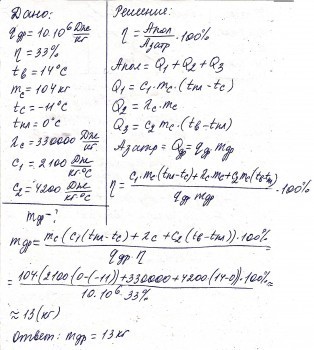 Дано:
qдр = 10·10⁶ Дж/кг
η = 33%
tв = 14°C
mс = 104 кг
tс = -11°C
tпл = 0°C
λс = 330000 Дж/кг
c₁ = 2100 Дж/кг·°C
c₂ = 4200 Дж/кг·°C
mдр - ?
Решение:
η = Aпол/Aзатр · 100%
Aпол = Q₁ + Q₂ + Q₃
Q₁ = c₁·mс·(tпл - tс)
Q₂ = λс·mс
Q₃ = c₂ mс·(tв - tпл)
Aзатр = Qдр = qдр mдр
η = (c₁·mс·(tпл - tс) + λс mс + c₂ mс(tв - tпл))/(qдр mдр) · 100%
mдр = (mс(c₁(tпл - tс) + λс + c₂(tв - tпл))·100%)/(qдр η) =
= (104(2100(0-(-11)) + 330000 + 4200(14-0))·100%)/(10·10⁶·33%) =
≈ 13 (кг)
Ответ: mдр = 13 кг